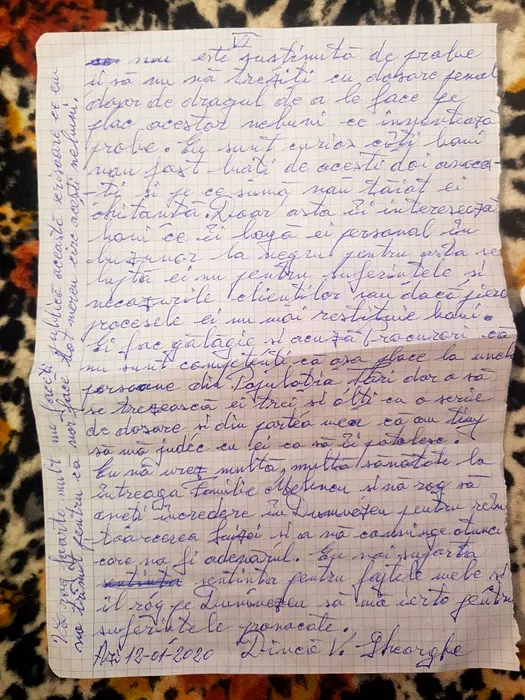 VI
nu este susținută de probe
ii să nu vă treziți cu dosare penal
doar de dragul de a le face pe
plac acestor nebuni ce inventează
probe. Eu sunt curios câți bani
v-au fost luați de acești doi avoca-
ți și pe ce sumă v-au tăiat ei
chitanță. Doar asta îi interesează
bani ce îi bagă ei personal în
buzunar la negru pentru asta se
luptă ei nu pentru suferințele și
necazurile clienților sau dacă pierd
procesele ei nu mai restituie bani.
Ei fac gălăgie și acuză Procurori că
nu sunt competenți că așa place la unele
persoane din Populația Țări dar o să
se trezească ei trei și alți cu o serie
de dosare și din partea mea că am timp
să mă judec cu ei ca să îi potolesc.
Eu vă urez multă, multă sănătate la
întreaga Familie Melencu și vă rog să
aveți încredere în Dumnezeu pentru rein
toarcerea Luizei și a vă convinge atunci
care va fi adevărul. Eu voi suporta
sentința pentru faptele mele și
îl rog pe Dumnezeu să mă ierte pentru
suferințele provocate.
Azi 12-01-2020 Dincă V. Gheorghe
Vă rog foarte mult nu faceți publică această scrisoare ce eu
v-o trimet pentru că vor face tot mereu circ acești nebuni.